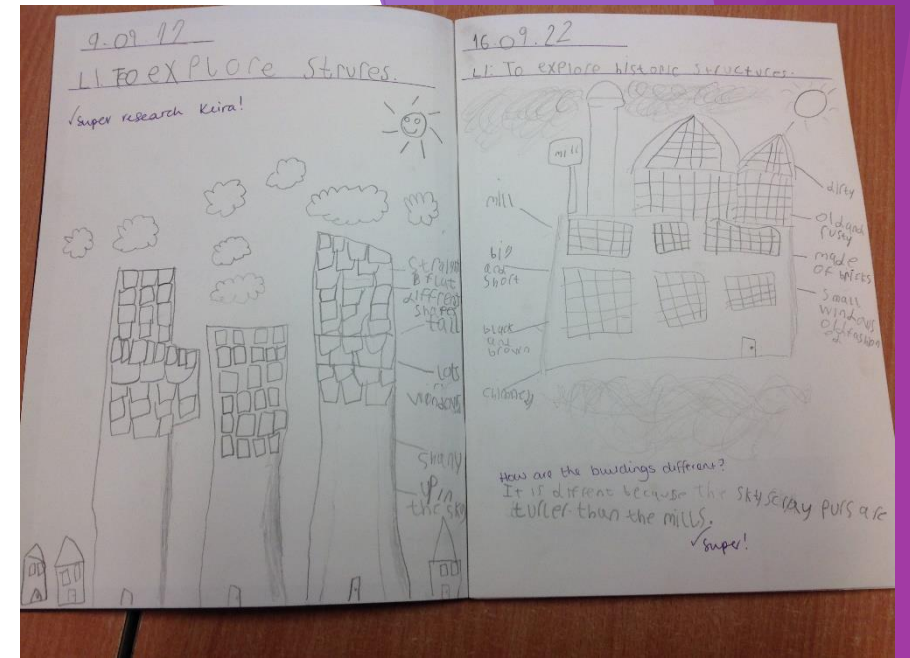 9.09.22
LI: To exPlore Strures.
✓super research Keira!
straight
& flat
different
shapes
tall
lots
windows
shany
up in
the sky
16.09.22
LI: To explore historic structures.
mill
mill
big
and
short
black
and
brown
chimney
dirty
old and
rusty
made
of bricks
small
windows
old fashion
ed
How are the buildings different?
It is diffrent because the skyscray purs are
turler than the mills.
✓super!